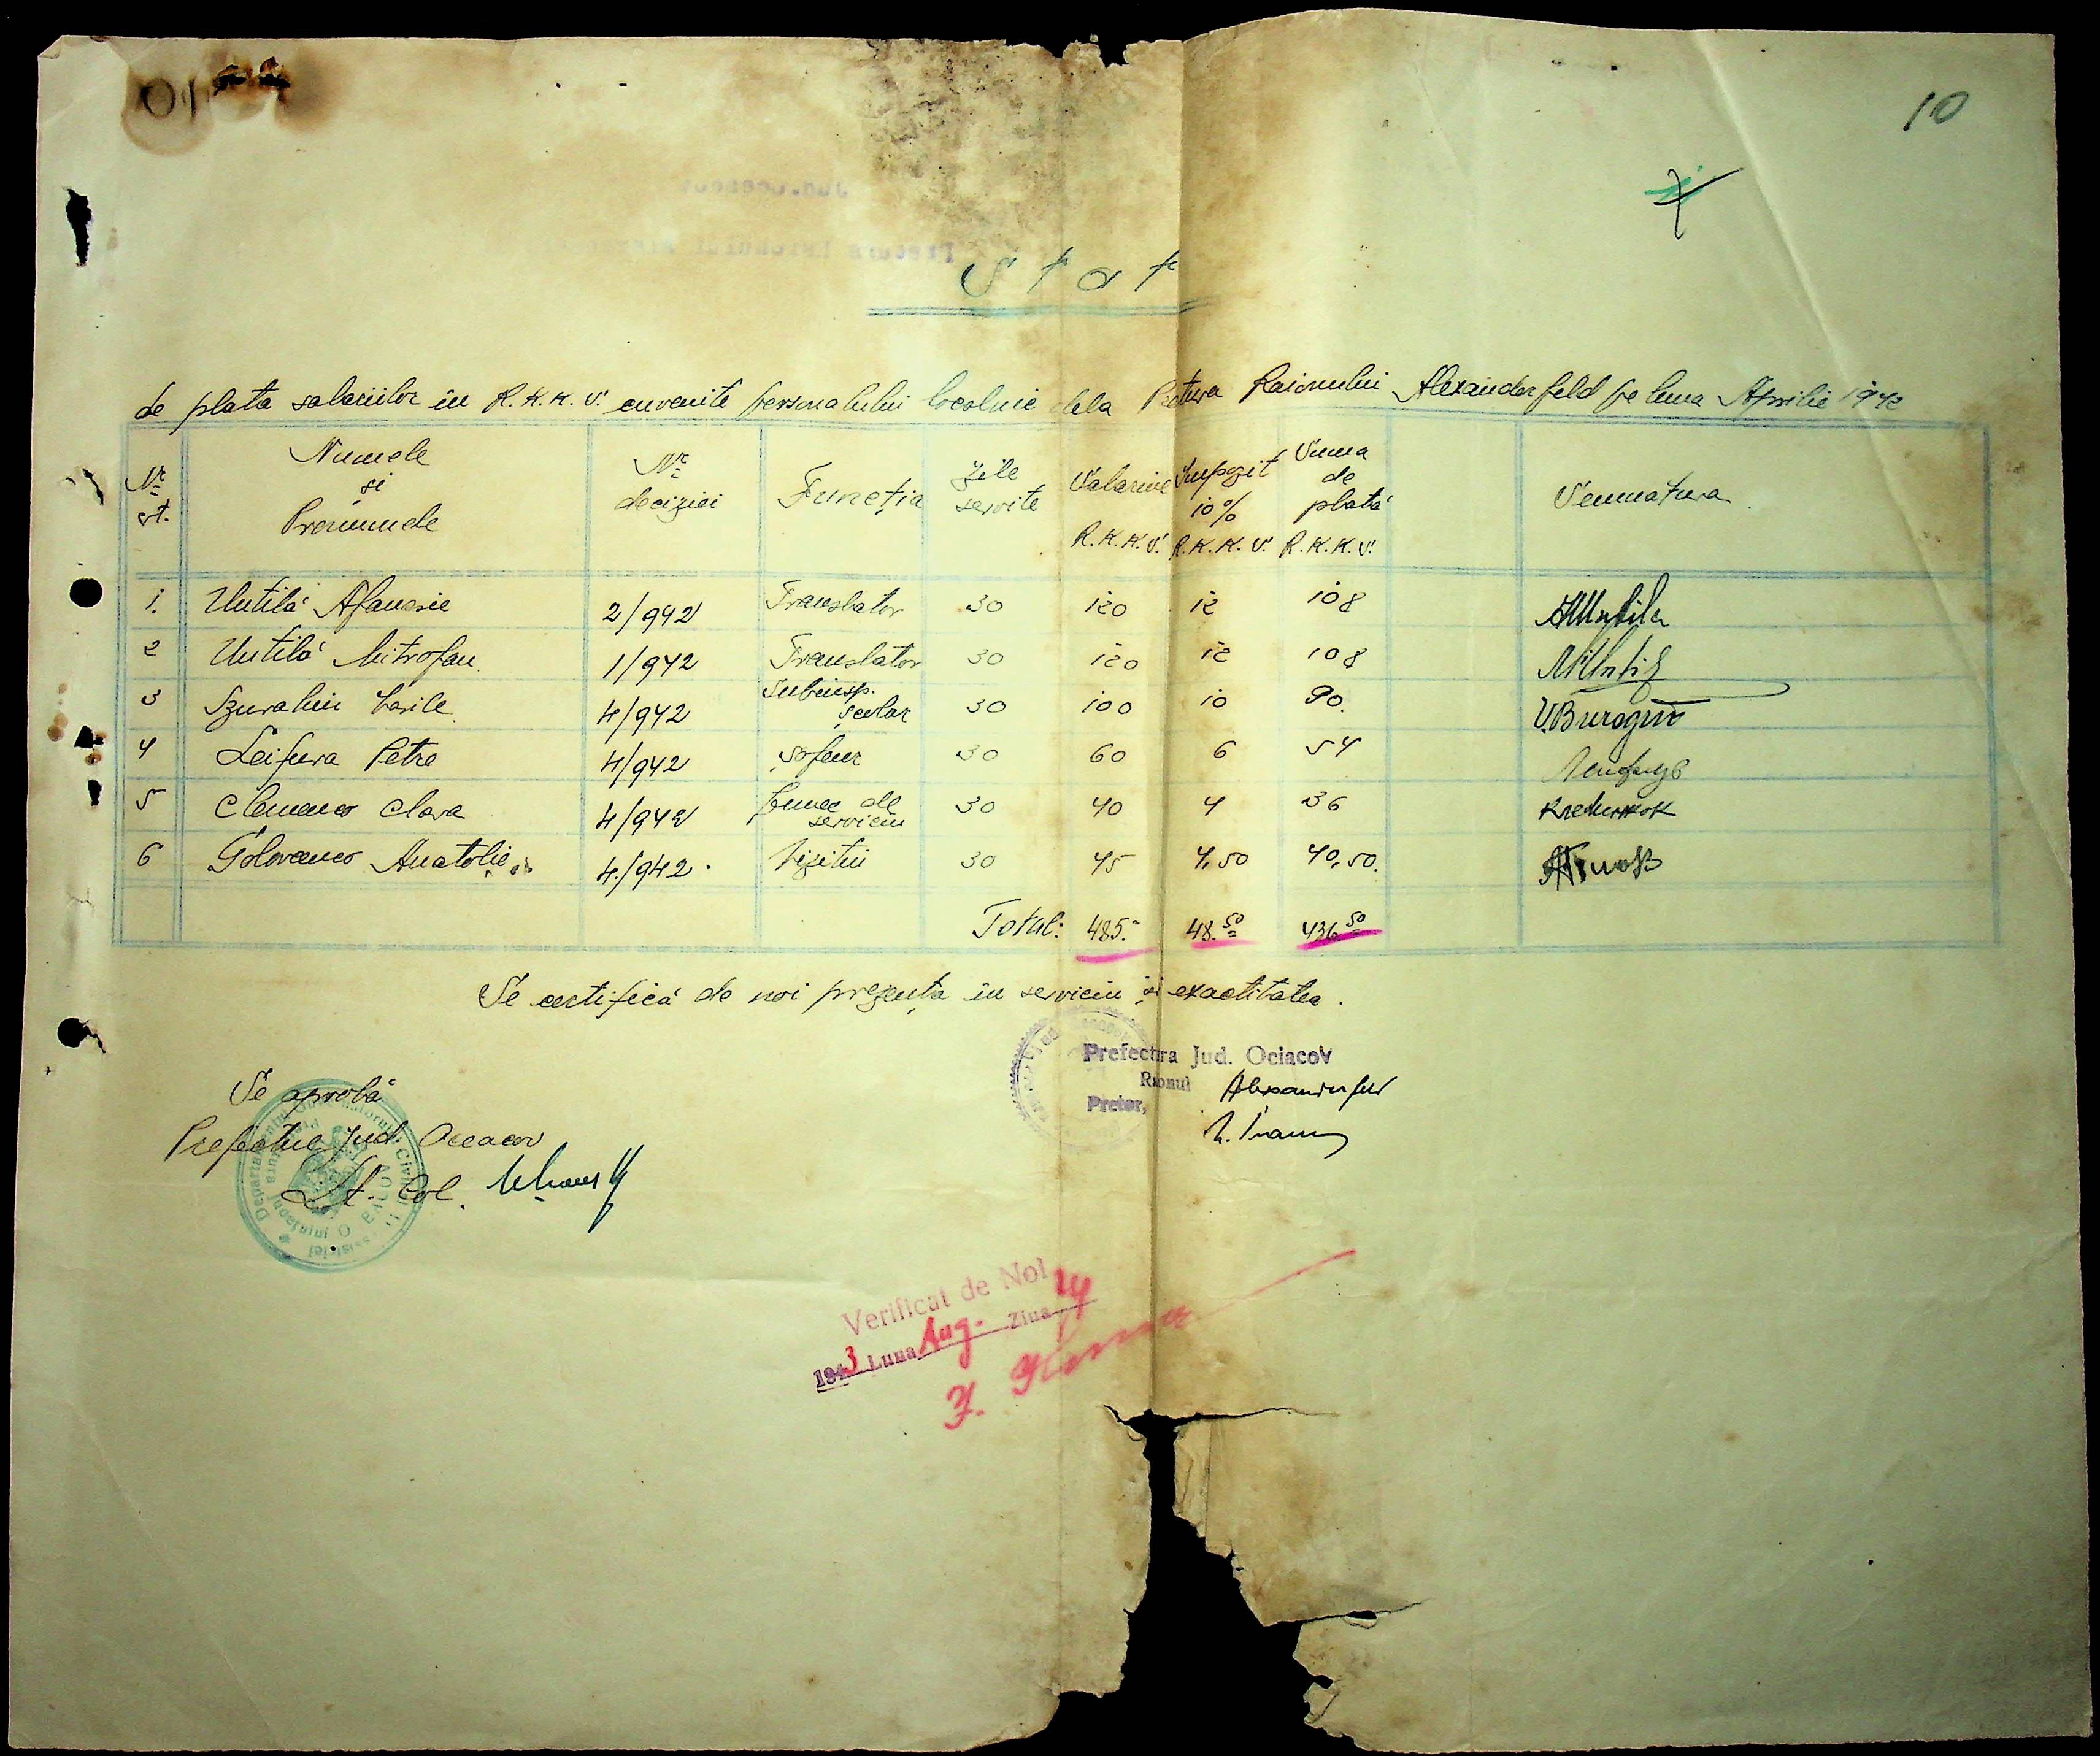 10
Stat
de plata salariilor în R.K.K.S. cuvenite personalului localnic dela Pretura Raionului Alexanderfeld pe luna Aprilie 1942
Nr. crt. Numele și Pronumele Nr. deciziei Funcția Zile servite Salariul R.K.K.S. Impozit 10% R.K.K.S. Suma de plată R.K.K.S. Semnatura
1. Untilă Afanasie 2/942 Translator 30 120 12 108
2 Untilă Mitrofan 1/942 Translator 30 120 12 108
3 Vasile 4/942 Subinsp. școlar 30 100 10 90.
4 Leifura Petre 4/942 șofeur 30 60 6 54
5 Clemenco Clara 4/942 femee de serviciu 30 40 4 36
6 Golovenco Anatolie 4/942 Vizitiu 30 45 4,50 40,50.
Total: 485.- 48.50 436.50
Se certifică de noi prezența în serviciu și exactitatea.
Prefectura Jud. Ociacov
Raionul Alexanderfeld
Pretor,
Se aprobă
Prefectul Jud. Oceacov
Lt. Col.
Verificat de Noi
1943 Luna Aug. Ziua 14